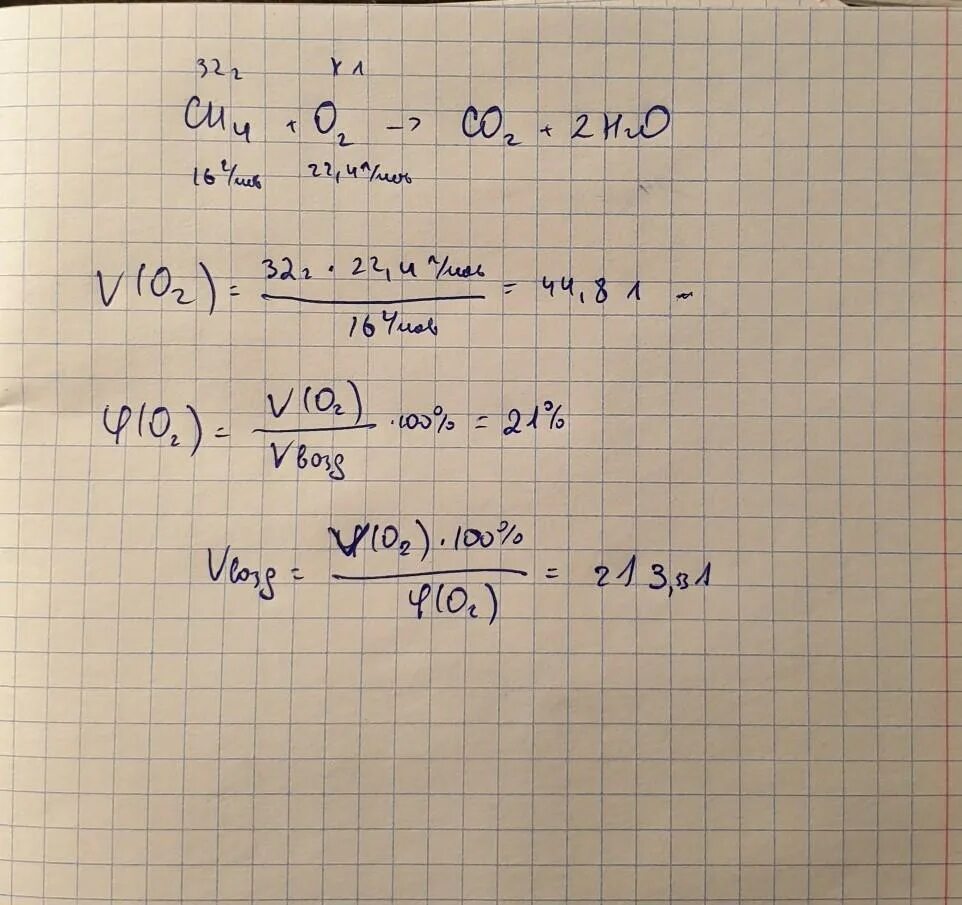 32г х л
CH₄ + O₂ → CO₂ + 2H₂O
16 г/моль 22,4 л/моль
V(O₂) = 32г · 22,4 л/моль / 16 г/моль = 44,8 л
φ(O₂) = V(O₂) / Vвозд · 100% = 21%
Vвозд = V(O₂) · 100% / φ(O₂) = 213,3л